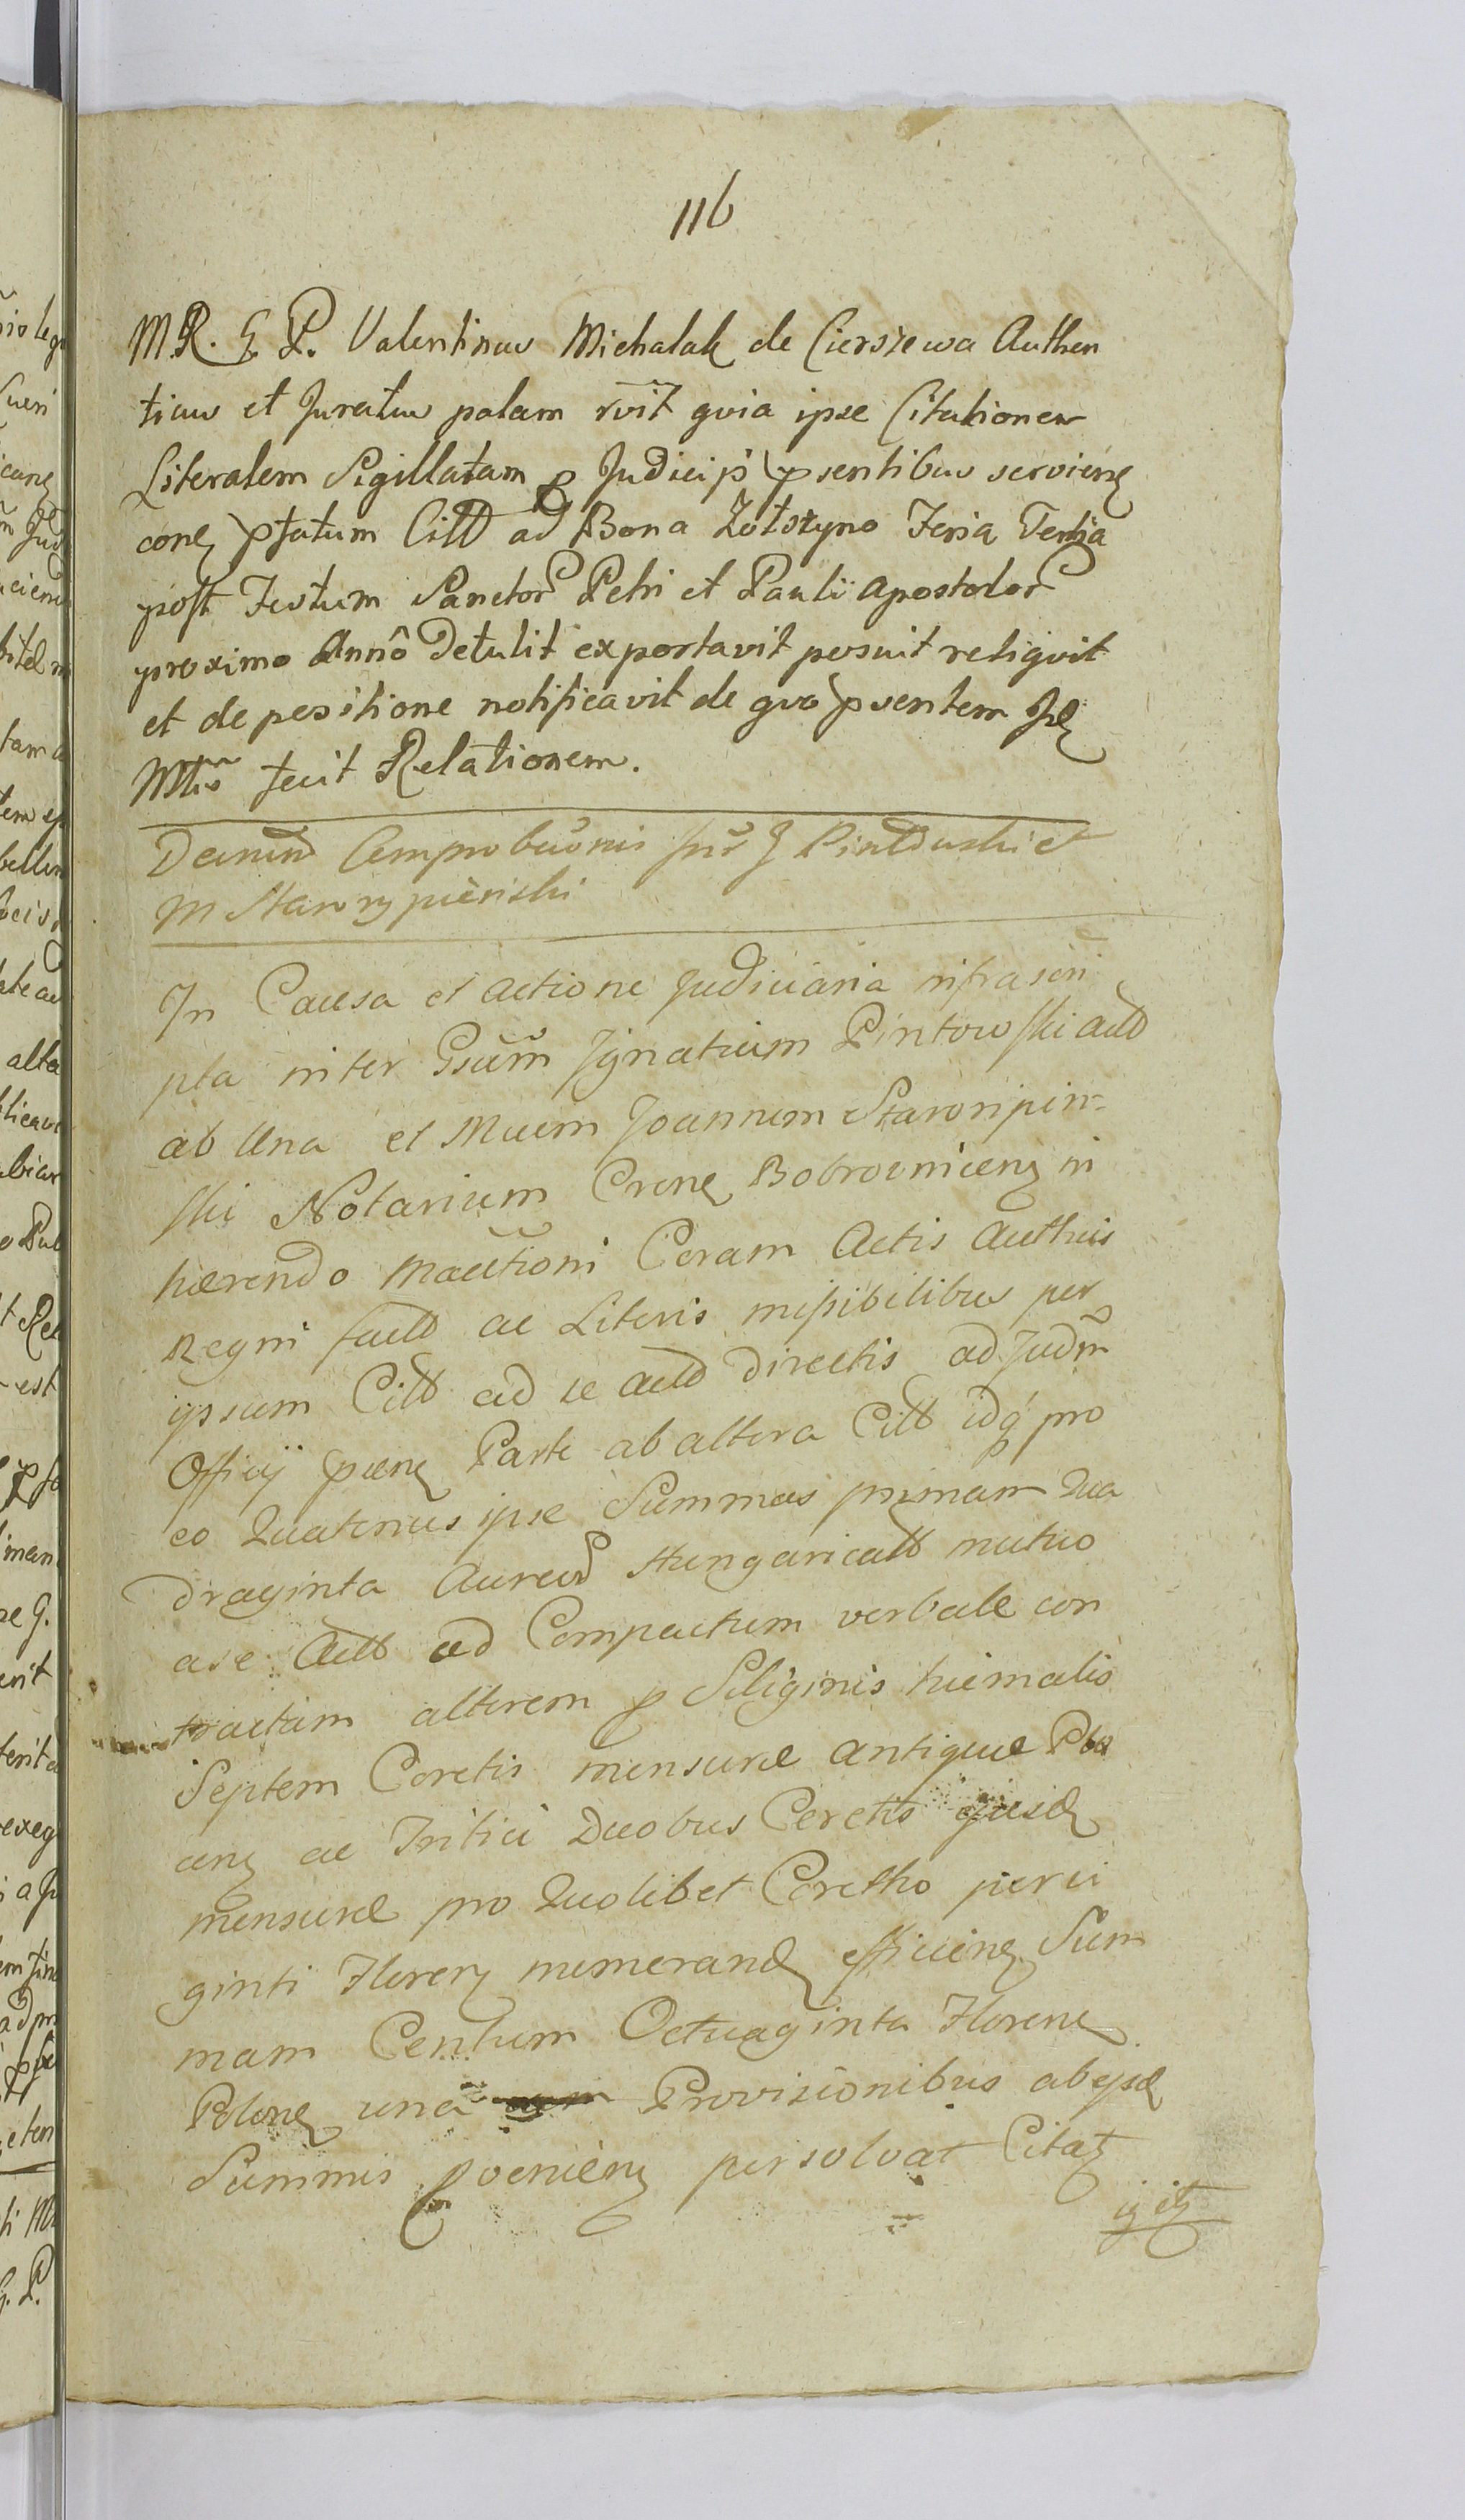 116
M.R. G. P. Valentinus Michalak de Cierszewa Authen
ticus et Juratus palam rvit quia ipse Citationem
Literalem Sigillatam p Judicijs psentibus serviens
cone pfatum Citt ad Bona Zołstyno Feria Tertia
post Festum Sanctor Petri et Pauli Apostolor
proximo Anno Detulit exportavit posuit reliquit
et de positione notificavit de quo psentem
fecit Relationem.
Decretum Comprobaonis Inr J
M Starorypiński
In Causa et Actione Judiciaria infrascri
pta inter Gsum Ignatium Pintowski Actt
ab Una et Mucum Joannem Staroripin-
ski Notarium Bobrovnicens in
hærendo Coram Actis Authcis
Regni factt ac Literis missibilibus per
ipsum Citt ad se Actt directis ad Judm
Officij psens Parte ab altera Citt idq pro
eo Quatenus ipse Summas primam Qua
draginta Aureor Hungaricalt mutuo
a se Actt ad Compactum verbale con
tractam alteram p Siliginis hiemalis
Septem Coretis mensuræ antiquæ
ac Tritici Duobus Coretis ejusd
mensuræ pro Quolibet Coretho per vi
ginti Floren numerand efficiens Sum
mam Centum Octuaginta Florens
Polons una Provisionibus ab ejsd
Summis pveniens persolvat Citat